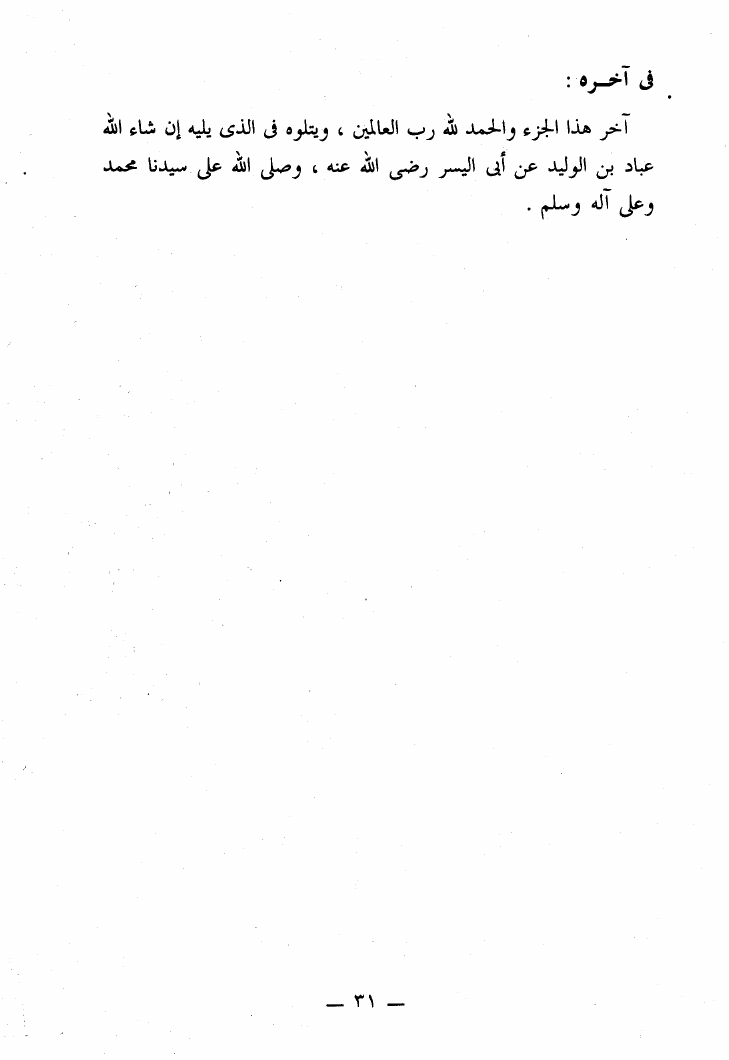 فى آخـره :
آخر هذا الجزء والحمد لله رب العالمين ، ويتلوه فى الذى يليه إن شاء الله
عباد بن الوليد عن أبى اليسر رضى الله عنه ، وصلى الله على سيدنا محمد
وعلى آله وسلم .
— ٣١ —